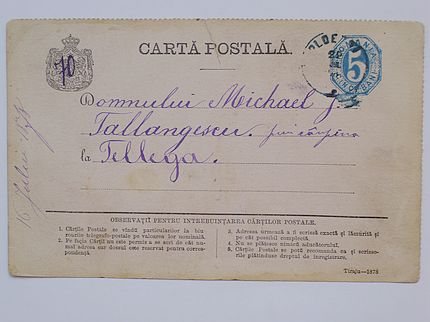 CARTĂ POSTALĂ.
PLOE
5
CINCI BANI
Domnului Michael J.
Tallangescu. prin câmpina
la Tellega.
6 Juliu 1878
OBSERVAȚII PENTRU INTREBUINȚAREA CĂRȚILOR POSTALE.
1. Cărțile Postale se vîndŭ particularilor la biu
rourile telegrafo-postale pe valoarea lor nominală.
2. Pe fața Cărții nu este permis a se scri de cât nu-
mai adresa ear dosul este reservat pentru cores-
pondență.
3. Adresa urmează a fi scrisă exactŭ și lămurită și
pe cât posibil complectă.
4. Nu se plătesce nimicŭ aducătorului.
5. Cărțile Postale se potŭ recomanda ca și scriso-
rile plătinduse dreptul de inregistrare.
Tiraju—1878